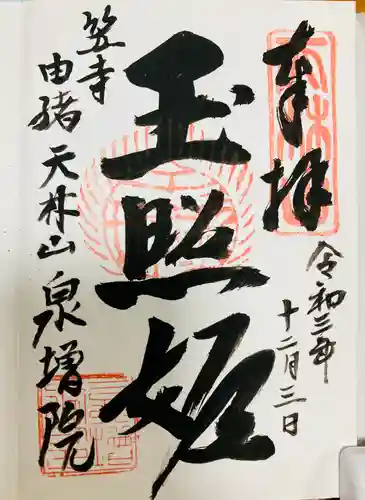 奉拝
令和三年
十二月三日
玉照姫
笠寺
由緒 天林山
泉増院